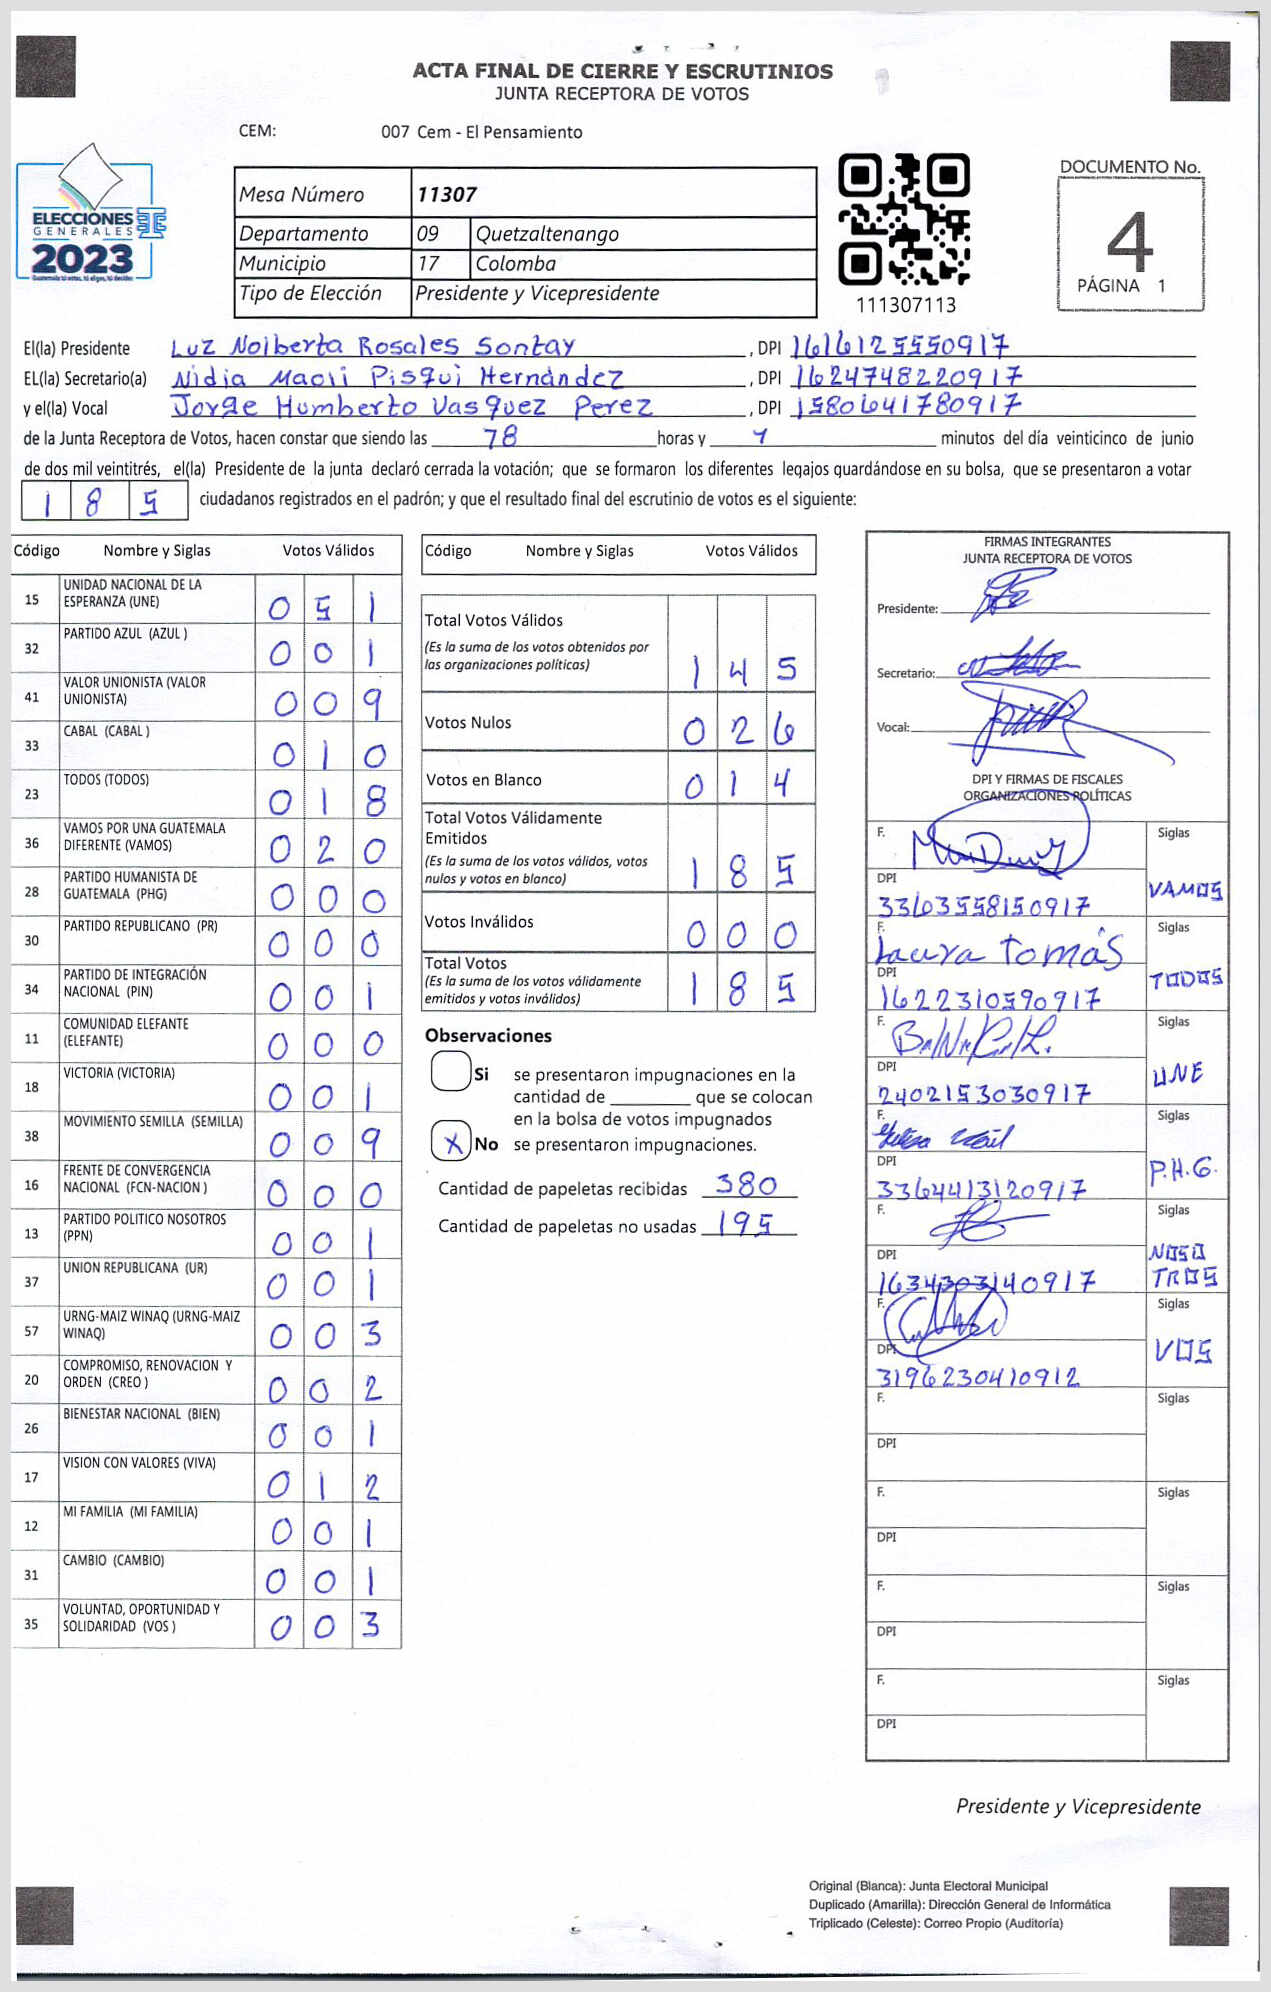 ACTA FINAL DE CIERRE Y ESCRUTINIOS
JUNTA RECEPTORA DE VOTOS
CEM: 007 Cem - El Pensamiento
ELECCIONES
GENERALES
2023
Guatemala tú votas, tú eliges, tú decides
Mesa Número 11307
Departamento 09 Quetzaltenango
Municipio 17 Colomba
Tipo de Elección Presidente y Vicepresidente
111307113
DOCUMENTO No.
4
PÁGINA 1
El(la) Presidente Luz Nolberta Rosales Sontay, DPI 1616125550917
EL(la) Secretario(a) Nidia Maoli Pisqui Hernández, DPI 1624748220917
y el(la) Vocal Jorge Humberto Vasquez Perez, DPI 1580641780917
de la Junta Receptora de Votos, hacen constar que siendo las 18 horas y 4 minutos del día veinticinco de junio
de dos mil veintitrés, el(la) Presidente de la junta declaró cerrada la votación; que se formaron los diferentes legajos guardándose en su bolsa, que se presentaron a votar
185 ciudadanos registrados en el padrón; y que el resultado final del escrutinio de votos es el siguiente:
Código Nombre y Siglas Votos Válidos
15 UNIDAD NACIONAL DE LA ESPERANZA (UNE) 051
32 PARTIDO AZUL (AZUL ) 001
41 VALOR UNIONISTA (VALOR UNIONISTA) 009
33 CABAL (CABAL ) 010
23 TODOS (TODOS) 018
36 VAMOS POR UNA GUATEMALA DIFERENTE (VAMOS) 020
28 PARTIDO HUMANISTA DE GUATEMALA (PHG) 000
30 PARTIDO REPUBLICANO (PR) 000
34 PARTIDO DE INTEGRACIÓN NACIONAL (PIN) 001
11 COMUNIDAD ELEFANTE (ELEFANTE) 000
18 VICTORIA (VICTORIA) 001
38 MOVIMIENTO SEMILLA (SEMILLA) 009
16 FRENTE DE CONVERGENCIA NACIONAL (FCN-NACION ) 000
13 PARTIDO POLITICO NOSOTROS (PPN) 001
37 UNION REPUBLICANA (UR) 001
57 URNG-MAIZ WINAQ (URNG-MAIZ WINAQ) 003
20 COMPROMISO, RENOVACION Y ORDEN (CREO ) 002
26 BIENESTAR NACIONAL (BIEN) 001
17 VISION CON VALORES (VIVA) 012
12 MI FAMILIA (MI FAMILIA) 001
31 CAMBIO (CAMBIO) 001
35 VOLUNTAD, OPORTUNIDAD Y SOLIDARIDAD (VOS ) 003
Código Nombre y Siglas Votos Válidos
Total Votos Válidos
(Es la suma de los votos obtenidos por
las organizaciones políticas) 145
Votos Nulos 026
Votos en Blanco 014
Total Votos Válidamente
Emitidos
(Es la suma de los votos válidos, votos
nulos y votos en blanco) 185
Votos Inválidos 000
Total Votos
(Es la suma de los votos válidamente
emitidos y votos inválidos) 185
Observaciones
Si se presentaron impugnaciones en la
cantidad de ________ que se colocan
en la bolsa de votos impugnados
X No se presentaron impugnaciones.
Cantidad de papeletas recibidas 380
Cantidad de papeletas no usadas 195
FIRMAS INTEGRANTES
JUNTA RECEPTORA DE VOTOS
Presidente:
Secretario:
Vocal:
DPI Y FIRMAS DE FISCALES
ORGANIZACIONES POLÍTICAS
F. Siglas
DPI VAMOS
3363558150917
F. Laura Tomás Siglas
DPI TODOS
1622310590917
F. Siglas
DPI UNE
2402153030917
F. Siglas
DPI P.H.G.
3364413120917
F. Siglas
DPI NOSO
1634303140917 TROS
F. Siglas
DPI VOS
3196230410912
F. Siglas
DPI
F. Siglas
DPI
F. Siglas
DPI
F. Siglas
DPI
Presidente y Vicepresidente
Original (Blanca): Junta Electoral Municipal
Duplicado (Amarilla): Dirección General de Informática
Triplicado (Celeste): Correo Propio (Auditoría)